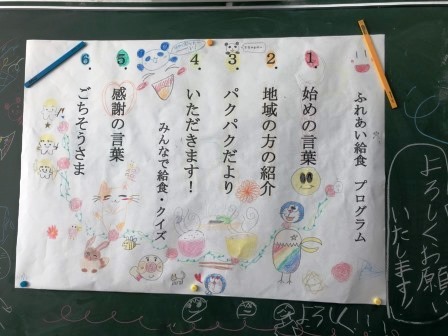 ふれあい給食　プログラム
1．始めの言葉
2．地域の方の紹介
3．パクパクだより
4．いただきます！
みんなで給食・クイズ
5．感謝の言葉
6．ごちそうさま
よろしくお願い
いたします！
よろしく